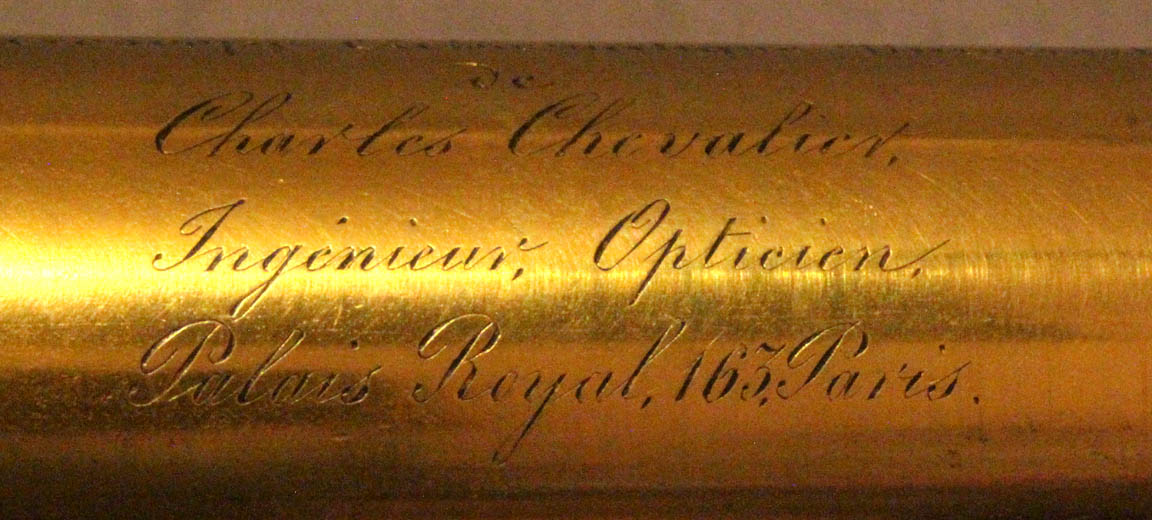 de
Charles Chevalier,
Ingénieur, Opticien,
Palais Royal, 163, Paris.